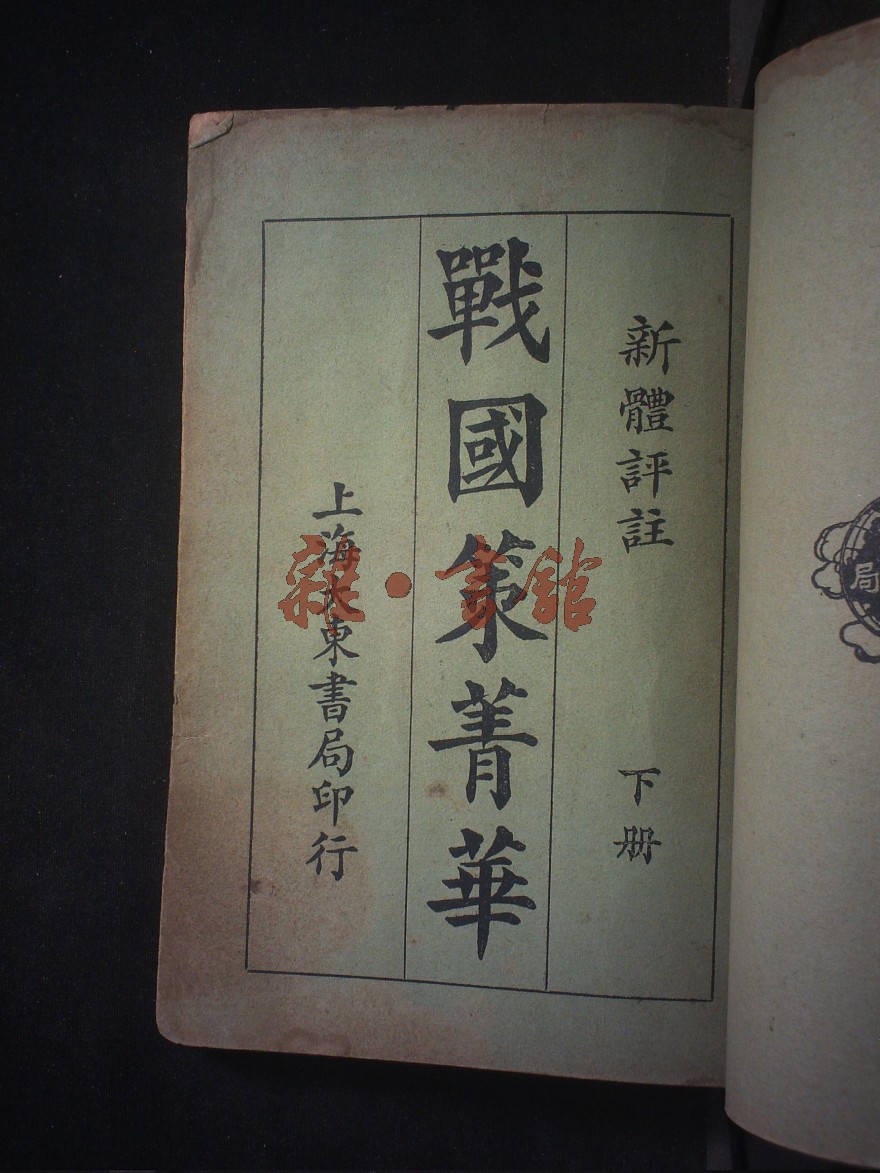 新體評註 下册
戰國策菁華
上海大東書局印行
雜·書館
局